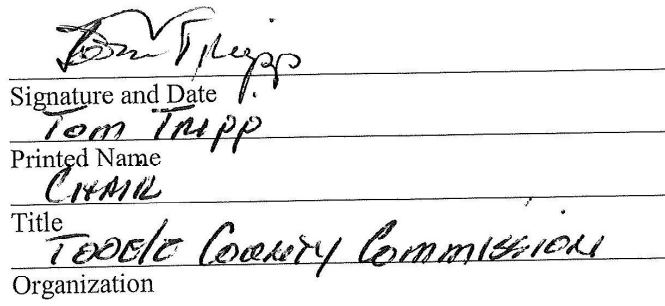 Tom Tripp
Signature and Date
Tom Tripp
Printed Name
CHAIR
Title
Tooele County Commission
Organization